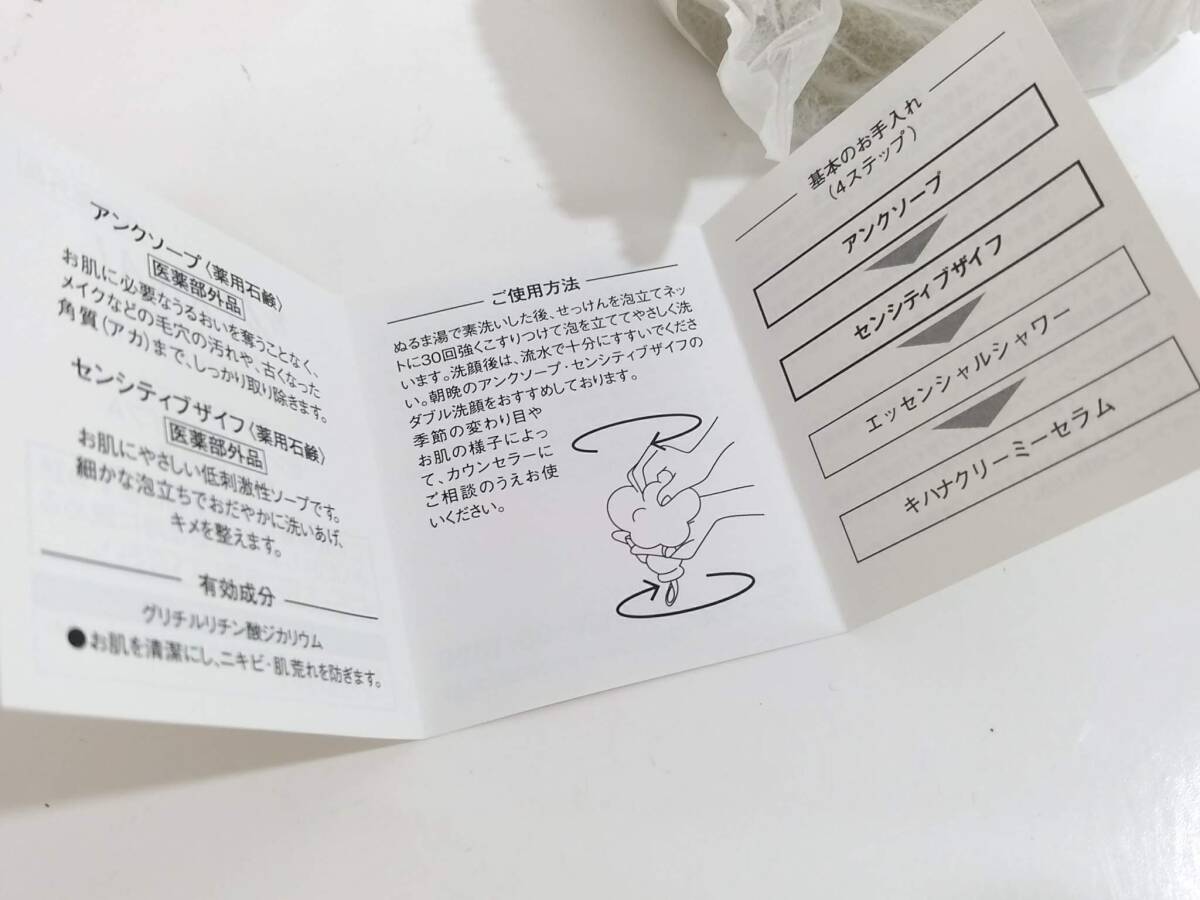 アンクソープ〈薬用石鹸〉
医薬部外品
お肌に必要なうるおいを奪うことなく、
メイクなどの毛穴の汚れや、古くなった
角質(アカ)まで、しっかり取り除きます。
センシティブザイフ〈薬用石鹸〉
医薬部外品
お肌にやさしい低刺激性ソープです。
細かな泡立ちでおだやかに洗いあげ、
キメを整えます。
有効成分
グリチルリチン酸ジカリウム
●お肌を清潔にし、ニキビ・肌荒れを防ぎます。
ご使用方法
ぬるま湯で素洗いした後、せっけんを泡立てネッ
トに30回強くこすりつけて泡を立ててやさしく洗
います。洗顔後は、流水で十分にすすいでくださ
い。朝晩のアンクソープ・センシティブザイフの
ダブル洗顔をおすすめしております。
季節の変わり目や
お肌の様子によっ
て、カウンセラーに
ご相談のうえお使
いください。
基本のお手入れ
(4ステップ)
アンクソープ
センシティブザイフ
エッセンシャルシャワー
キハナクリーミーセラム